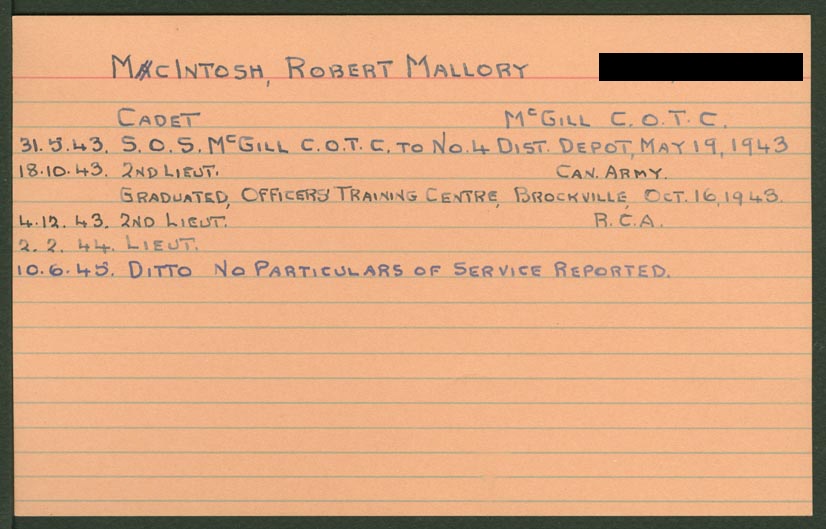 MacINTOSH, ROBERT MALLORY
CADET McGILL C.O.T.C.
31.5.43. S.O.S. McGILL C.O.T.C. TO NO.4 DIST. DEPOT, MAY 19, 1943
18.10.43. 2ND LIEUT. CAN. ARMY.
GRADUATED, OFFICERS' TRAINING CENTRE, BROCKVILLE, OCT. 16, 1943.
4.12.43. 2ND LIEUT. R.C.A.
2.2.44. LIEUT.
10.6.45. DITTO NO PARTICULARS OF SERVICE REPORTED.